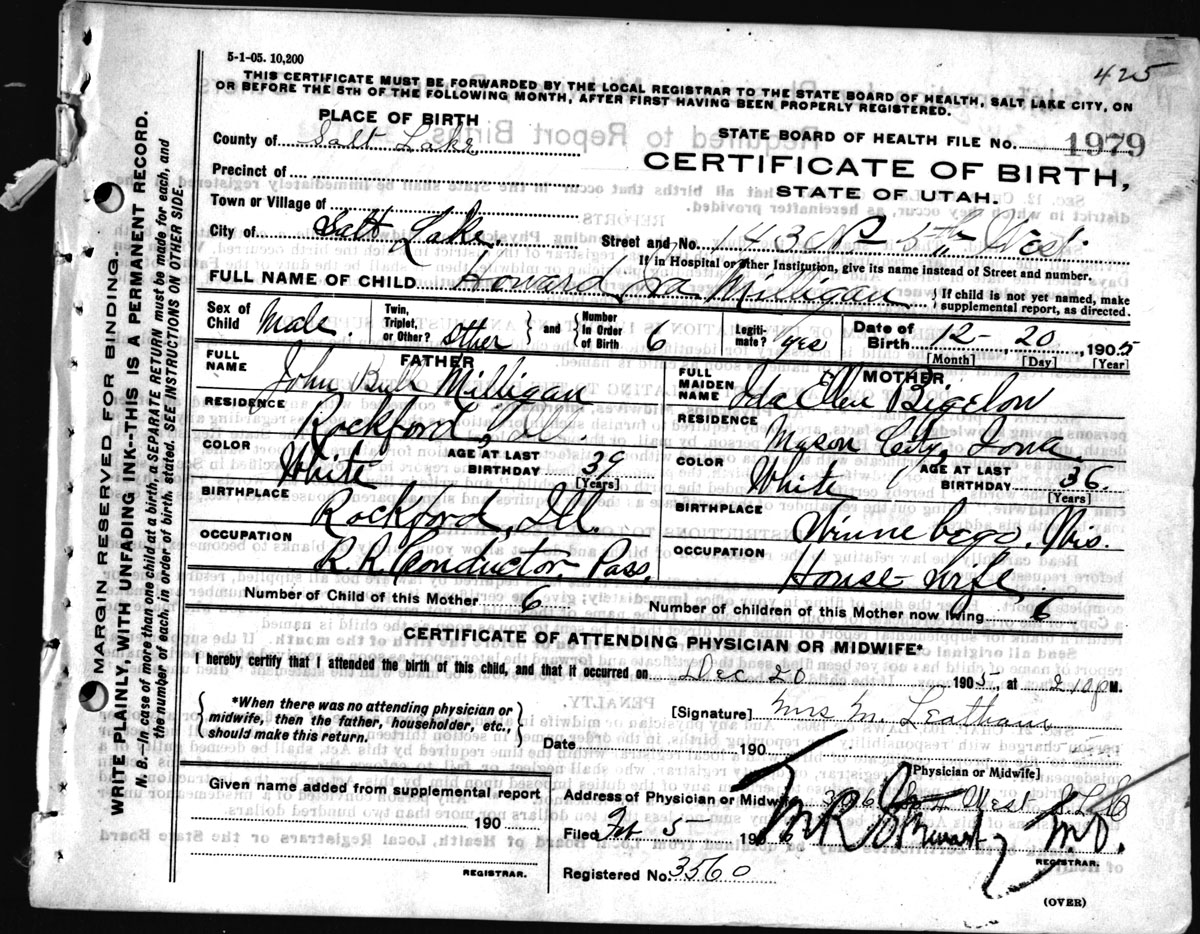 5-1-05. 10,200
425
THIS CERTIFICATE MUST BE FORWARDED BY THE LOCAL REGISTRAR TO THE STATE BOARD OF HEALTH, SALT LAKE CITY, ON
OR BEFORE THE 5TH OF THE FOLLOWING MONTH, AFTER FIRST HAVING BEEN PROPERLY REGISTERED.
PLACE OF BIRTH
STATE BOARD OF HEALTH FILE No. 1979
County of Salt Lake
CERTIFICATE OF BIRTH,
Precinct of
STATE OF UTAH.
Town or Village of
City of Salt Lake. Street and No. 143 5th West.
If in Hospital or other Institution, give its name instead of Street and number.
FULL NAME OF CHILD Howard Ira Milligan { If child is not yet named, make supplemental report, as directed.
Sex of Child Male Twin, Triplet, or Other? other } and { Number in Order of Birth 6 Legiti-mate? yes Date of Birth 12- 20, 1905
[Month] [Day] [Year]
FATHER
FULL NAME John Milligan
MOTHER.
FULL MAIDEN NAME Ida Ellen Bigelow
RESIDENCE Rockford, Ill.
RESIDENCE Mason City, Iowa
COLOR White AGE AT LAST BIRTHDAY 39 [Years]
COLOR White AGE AT LAST BIRTHDAY 36. [Years]
BIRTHPLACE Rockford, Ill.
BIRTHPLACE Winnebego, Wis.
OCCUPATION R.R. Conductor- Pass.
OCCUPATION House-wife.
Number of Child of this Mother 6. Number of children of this Mother now living 6
CERTIFICATE OF ATTENDING PHYSICIAN OR MIDWIFE*
I hereby certify that I attended the birth of this child, and that it occurred on Dec 20 1905, at 2 10 P M.
{ *When there was no attending physician or midwife, then the father, householder, etc., should make this return. }
[Signature] Mrs M. Leatham
Date 190
[Physician or Midwife]
Given name added from supplemental report
Address of Physician or Midwife West S.L.C
190
Filed Feb 5- 1906 M.D.
REGISTRAR.
REGISTRAR.
Registered No. 3560
(OVER)
MARGIN RESERVED FOR BINDING.
WRITE PLAINLY, WITH UNFADING INK--THIS IS A PERMANENT RECORD.
N. B.--In case of more than one child at a birth, a SEPARATE RETURN must be made for each, and
the number of each, in order of birth, stated. SEE INSTRUCTIONS ON OTHER SIDE.